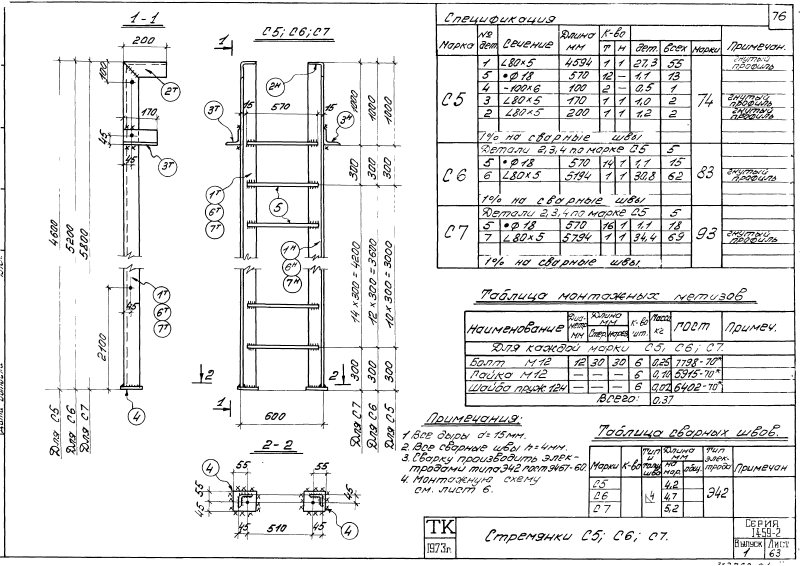 76
1-1
200
100
2т
170
45
3т
45
4600
5200
5800
1т
6т
7т
45
2100
4
Для С5
Для С6
Для С7
С5; С6; С7
1
2н
15
570
15
3т
3н
1000
1000
1000
300
300
300
1т
6т
7т
5
300
300
300
1н
6н
7н
14×300=4200
12×300=3600
10×300=3000
300
300
300
2
2
1
600
Для С7
Для С6
Для С5
2-2
4
55
55
55
45
55
45
45
510
45
4
Спецификация
Марка № дет. Сечение Длина мм К-во Т Н дет. всех марки Примечан.
С5 74
1 L80×5 4594 1 1 27,3 55 гнутый профиль
5 •Ф18 570 12 — 1,1 13
4 -100×6 100 2 — 0,5 1
3 L80×5 170 1 1 1,0 2 гнутый профиль
2 L80×5 200 1 1 1,2 2 гнутый профиль
1% на сварные швы
С6 83
Детали 2,3,4 по марке С5 5
5 •Ф18 570 14 1 1,1 15
6 L80×5 5194 1 1 30,8 62 гнутый профиль
1% на сварные швы
С7 93
Детали 2,3,4 по марке С5 5
5 •Ф18 570 16 1 1,1 18
7 L80×5 5794 1 1 34,4 69 гнутый профиль
1% на сварные швы.
Таблица монтажных метизов
Наименование Диаметр мм Длина мм Стер. нарез. К-во шт. Масса кг ГОСТ Примеч.
Для каждой марки С5, С6; С7.
Болт М12 12 30 30 6 0,25 7798-70*
Гайка М12 — — — 6 0,10 5915-70*
Шайба пруж. 12Н — — — 6 0,02 6402-70*
Всего: 0,37
Примечания:
1. Все дыры d=15мм.
2. Все сварные швы h=4мм.
3. Сварку производить элек-
тродами типа Э42 гост 9467-60.
4. Монтажную схему
см. лист 6.
Таблица сварных швов.
Марки К-во Тип и толщ. шва Длина м на мар. общ. Тип элек-трода Примечан
С5 4,2
С6 4 4,7 Э42
С7 5,2
ТК
1973г.
Стремянки С5; С6; С7.
Серия
1.459-2
Выпуск Лист
1 63